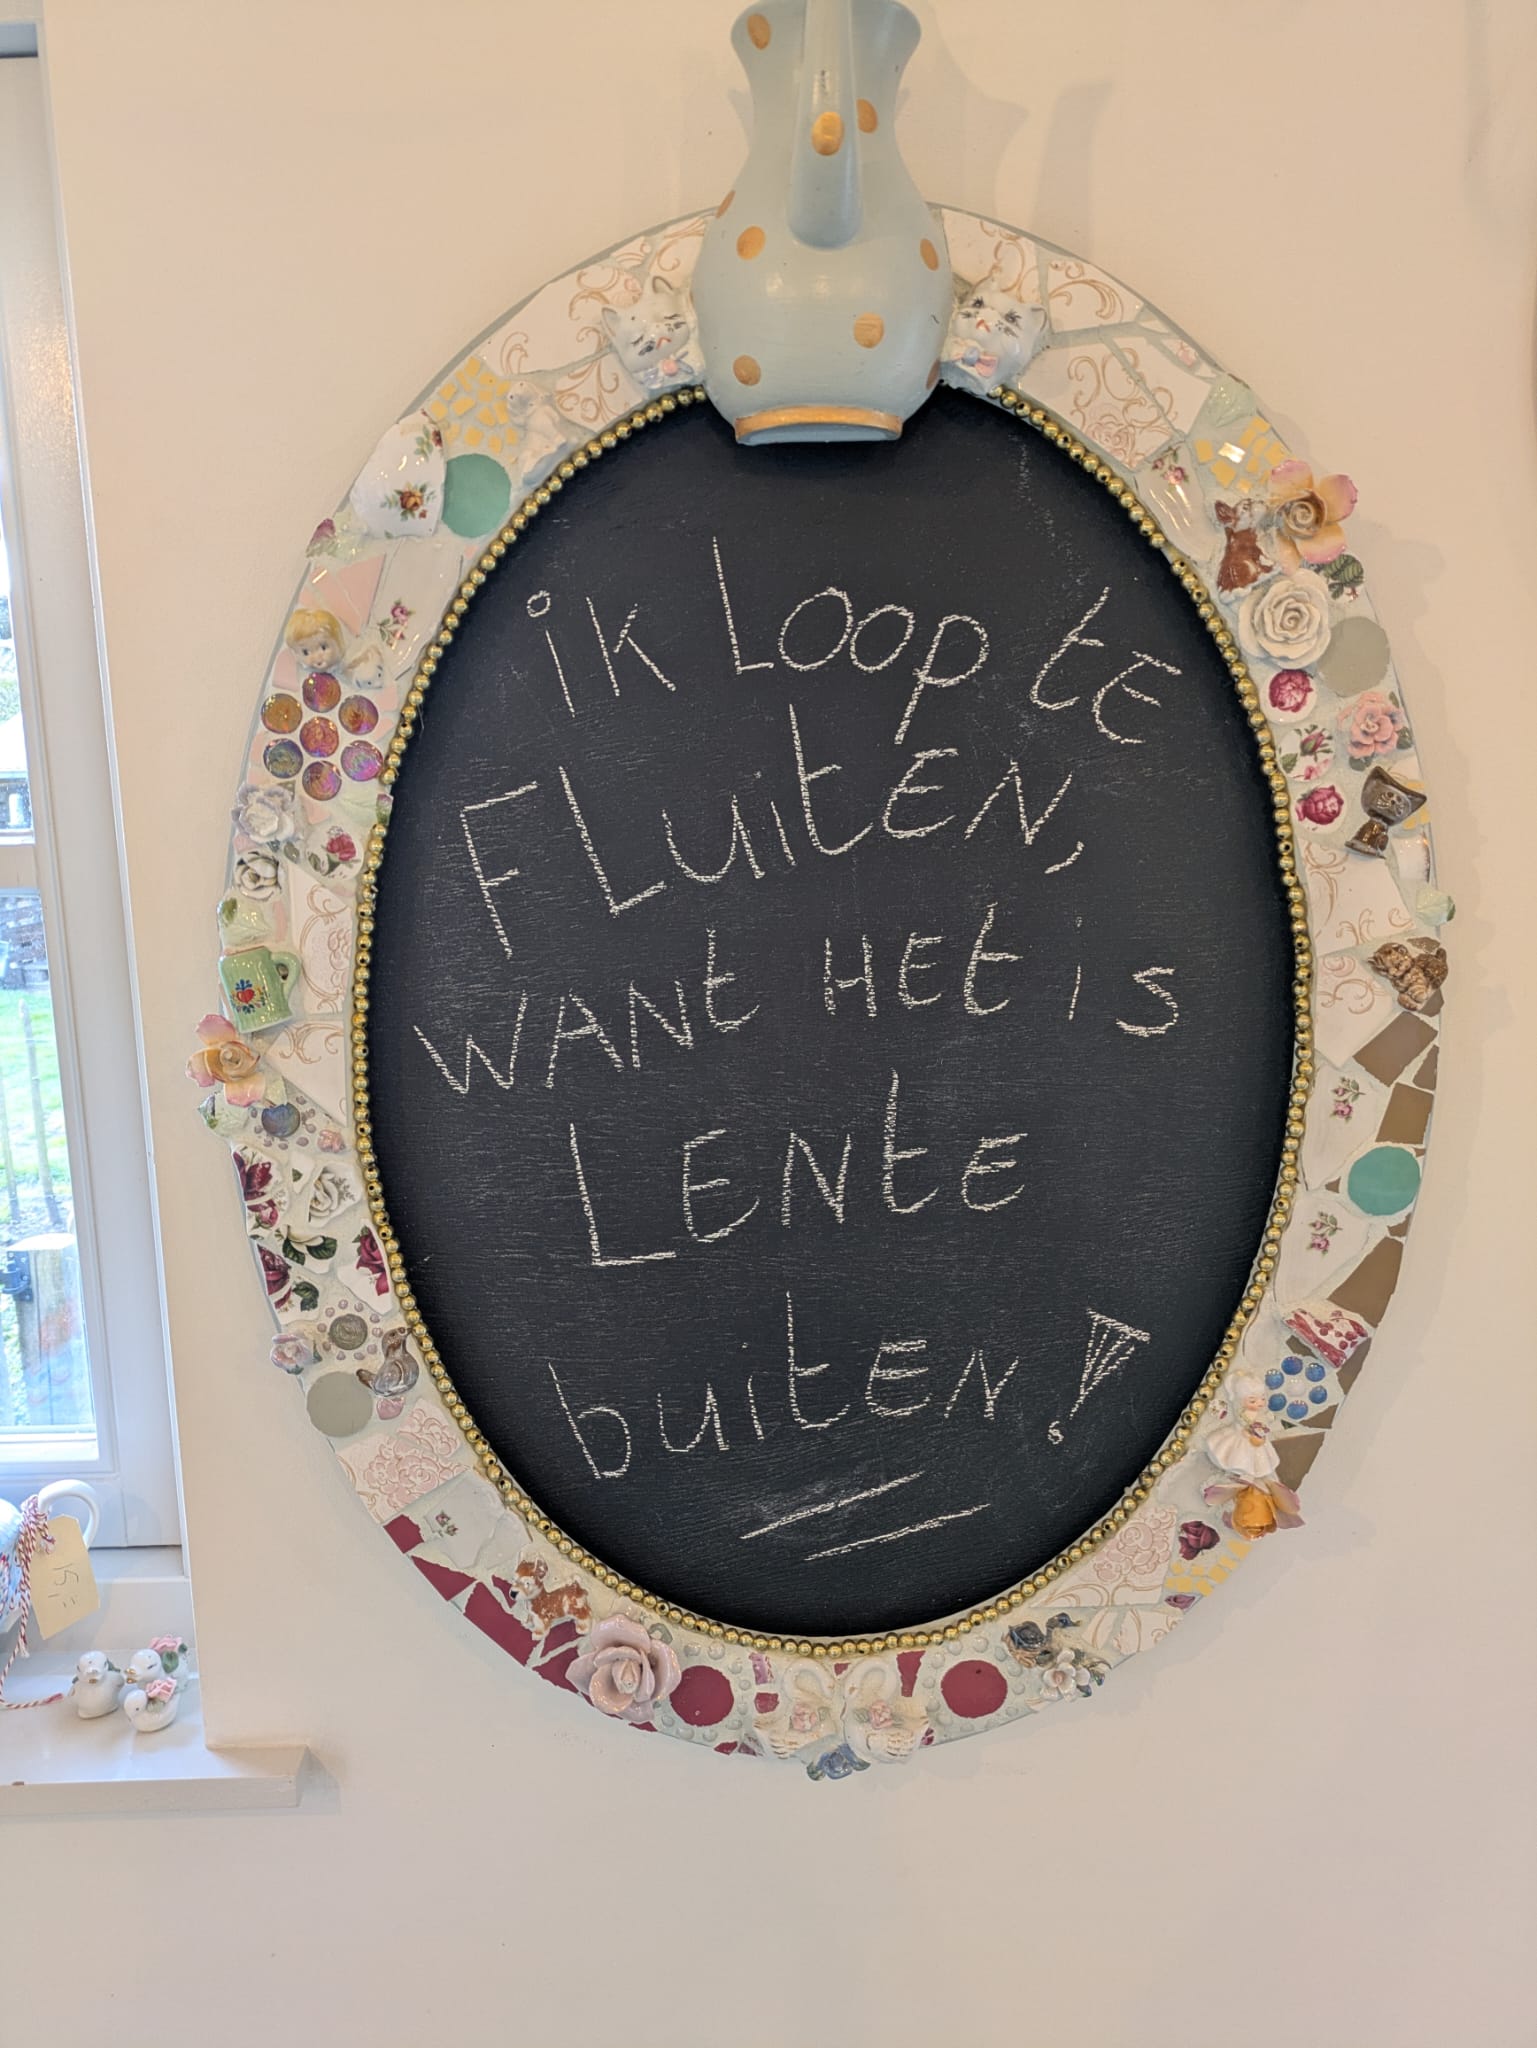 ik Loop tE
FLuitEN,
WANt HEt is
LENtE
buitEN!